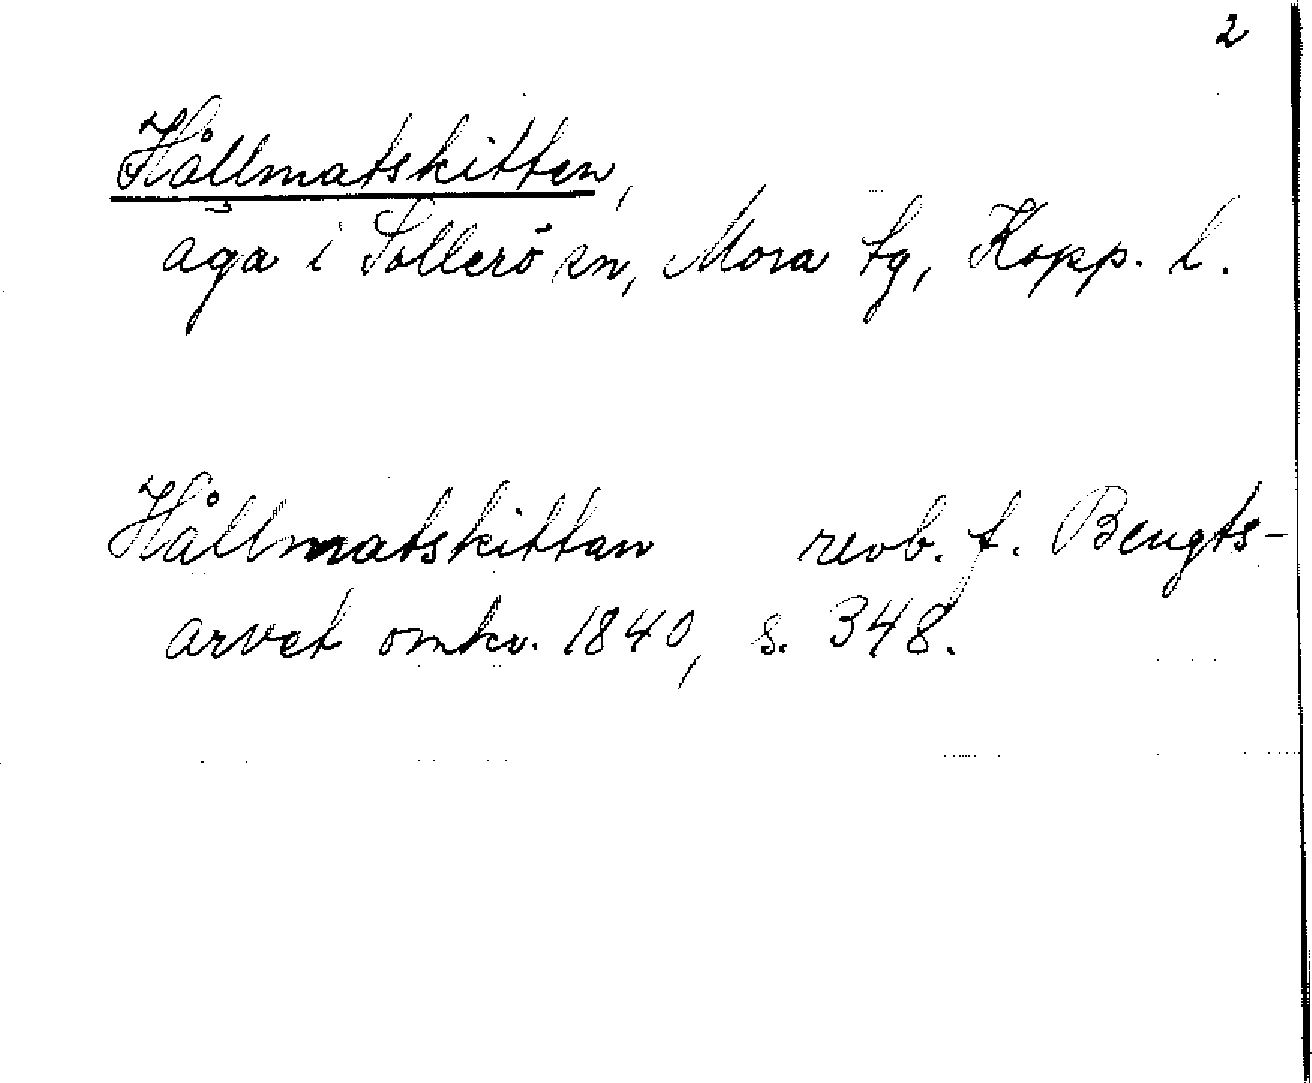 2
Hållmatskitten,
äga i Sollerö sn, Mora tg, Kopp. l.
Hållmatskittan revb. f. Bengts-
arvet omkr. 1840, s. 348.